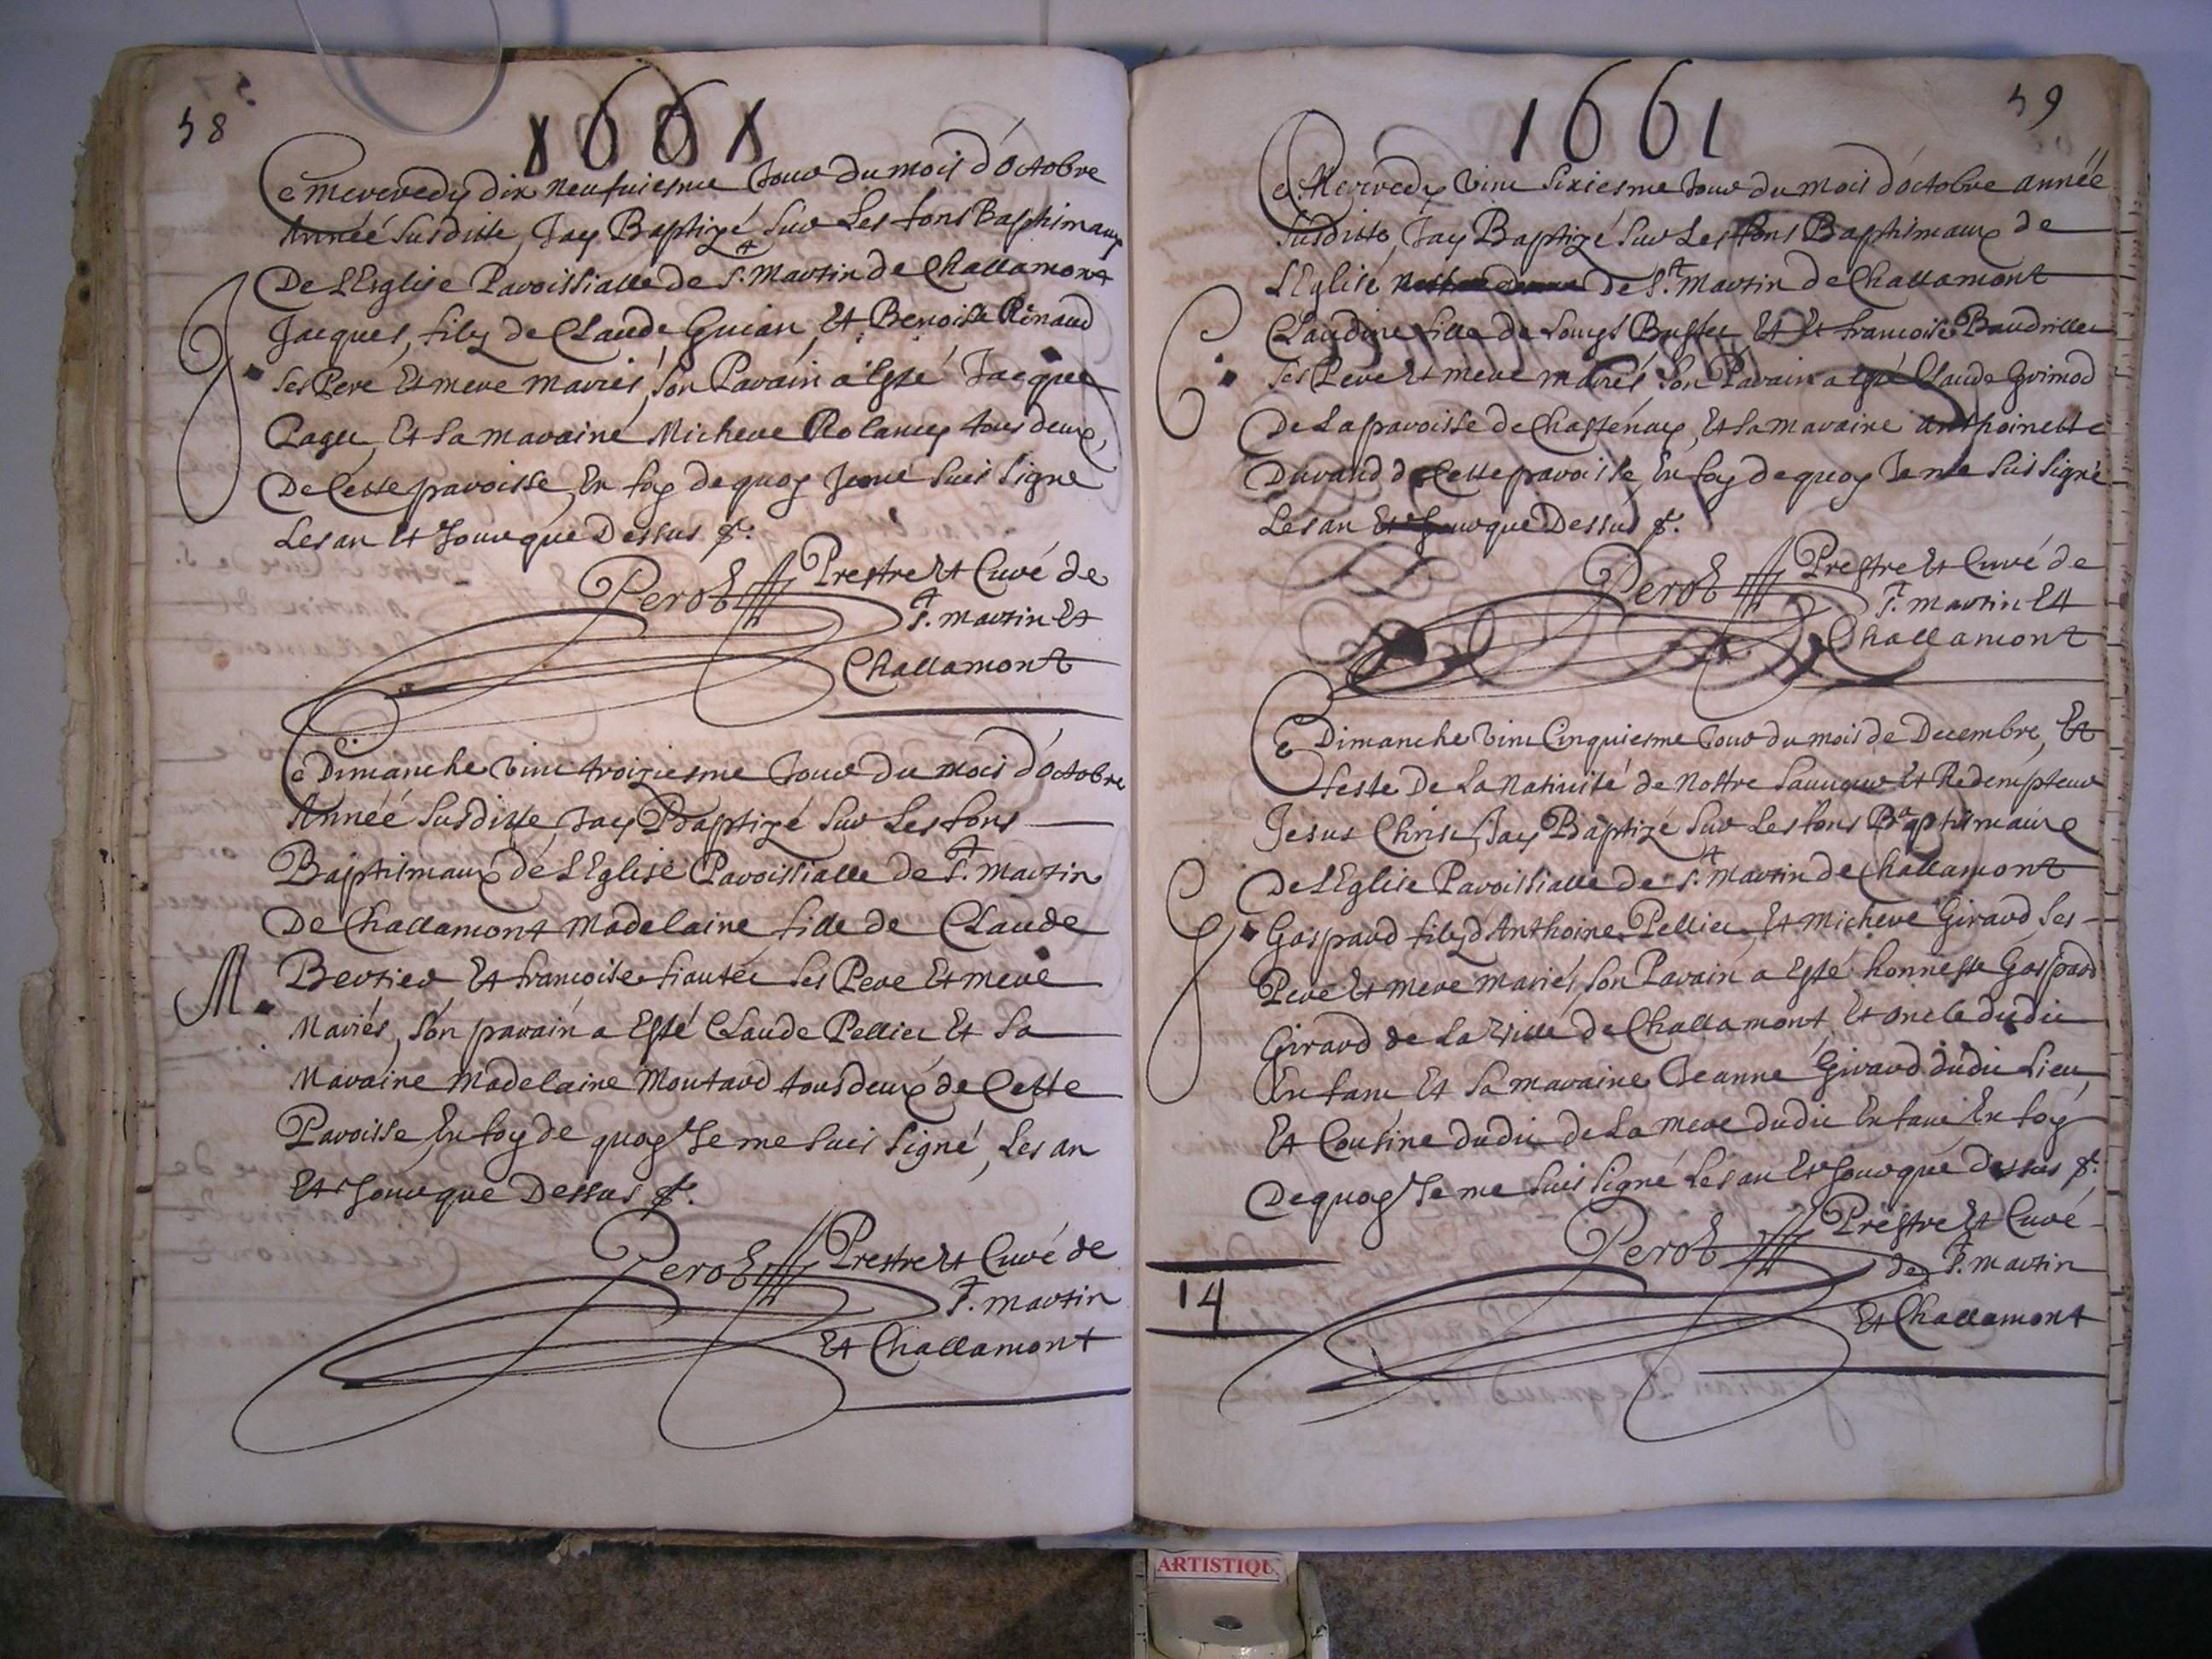 58
1661
Ce mercredy dix neufuiesme Jour du mois d'Octobre
Année susditte, Jay Baptizé sur Les fons Baptismaux
De L'Esglise Paroissialle de St. Martin de Challamont
J Jacques, filz de Claude Guian, Et Benoiste Renaud
ses Pere Et mere mariés, son Parain a Esté Jacque
Et sa maraine Michere Rolancy tous deux,
De Cette paroisse, En foy de quoy Je me suis signé
Les an Et Jour que Dessus &.
Perot Prestre Et Curé de
St. martin Et
Challamont
Ce Dimanche vint troiziesme Jour du mois d'Octobre
Année susditte, Jay Baptizé sur Les fons
Baptismaux de L'Eglise Paroissialle de St. Martin
De Challamont Madelaine fille de Claude
M. Bertier Et francoise ses Pere Et mere
Mariés, son parain a Esté Claude Pellier Et sa
Maraine Madelaine Moutard tous deux de Cette
Paroisse, En foy de quoy Je me suis signé, Les an
Et Jour que Dessus &.
Perot Prestre Et Curé de
St. martin
Et Challamont
59
1661
Ce Mercredy vint sixiesme Jour du mois d'octobre année
susditte, Jay Baptizé sur Les fons Baptismaux de
L'Eglise De St. Martin de Challamont
C. Claudine fille de Louys Et Et francoise
ses Pere Et mere mariés son Parain a esté Claude Guimod
De La paroisse de Chastenay, Et sa maraine Anthoinette
Durand de Cette paroisse, En foy de quoy Je me suis signé
Les an Et Jour que Dessus &.
Perot Prestre Et Curé de
St. martin Et
Challamont
Ce Dimanche vint Cinquiesme Jour du mois de Decembre, Et
feste De La Natiuité de Nostre Sauueur Et Redempteur
Jesus Christ, Jay Baptizé sur Les fons Baptismaux
De L'Eglise Paroissialle de St. Martin de Challamont
G Gaspard filz d'Anthoine Pellier, Et Michere Girard ses
Pere Et mere mariés, son Parain a Esté honneste Gaspard
Girard de La Ville de Challamont, Et oncle dudit
Enfant Et sa maraine Jeanne Girard dudit Lieu,
Et Cousine dudit de La mere dudit Enfant, En foy
De quoy Je me suis signé Les an Et Jour que dessus &.
Perot Prestre Et Curé
de St. martin
Et Challamont
14
ARTISTIQU